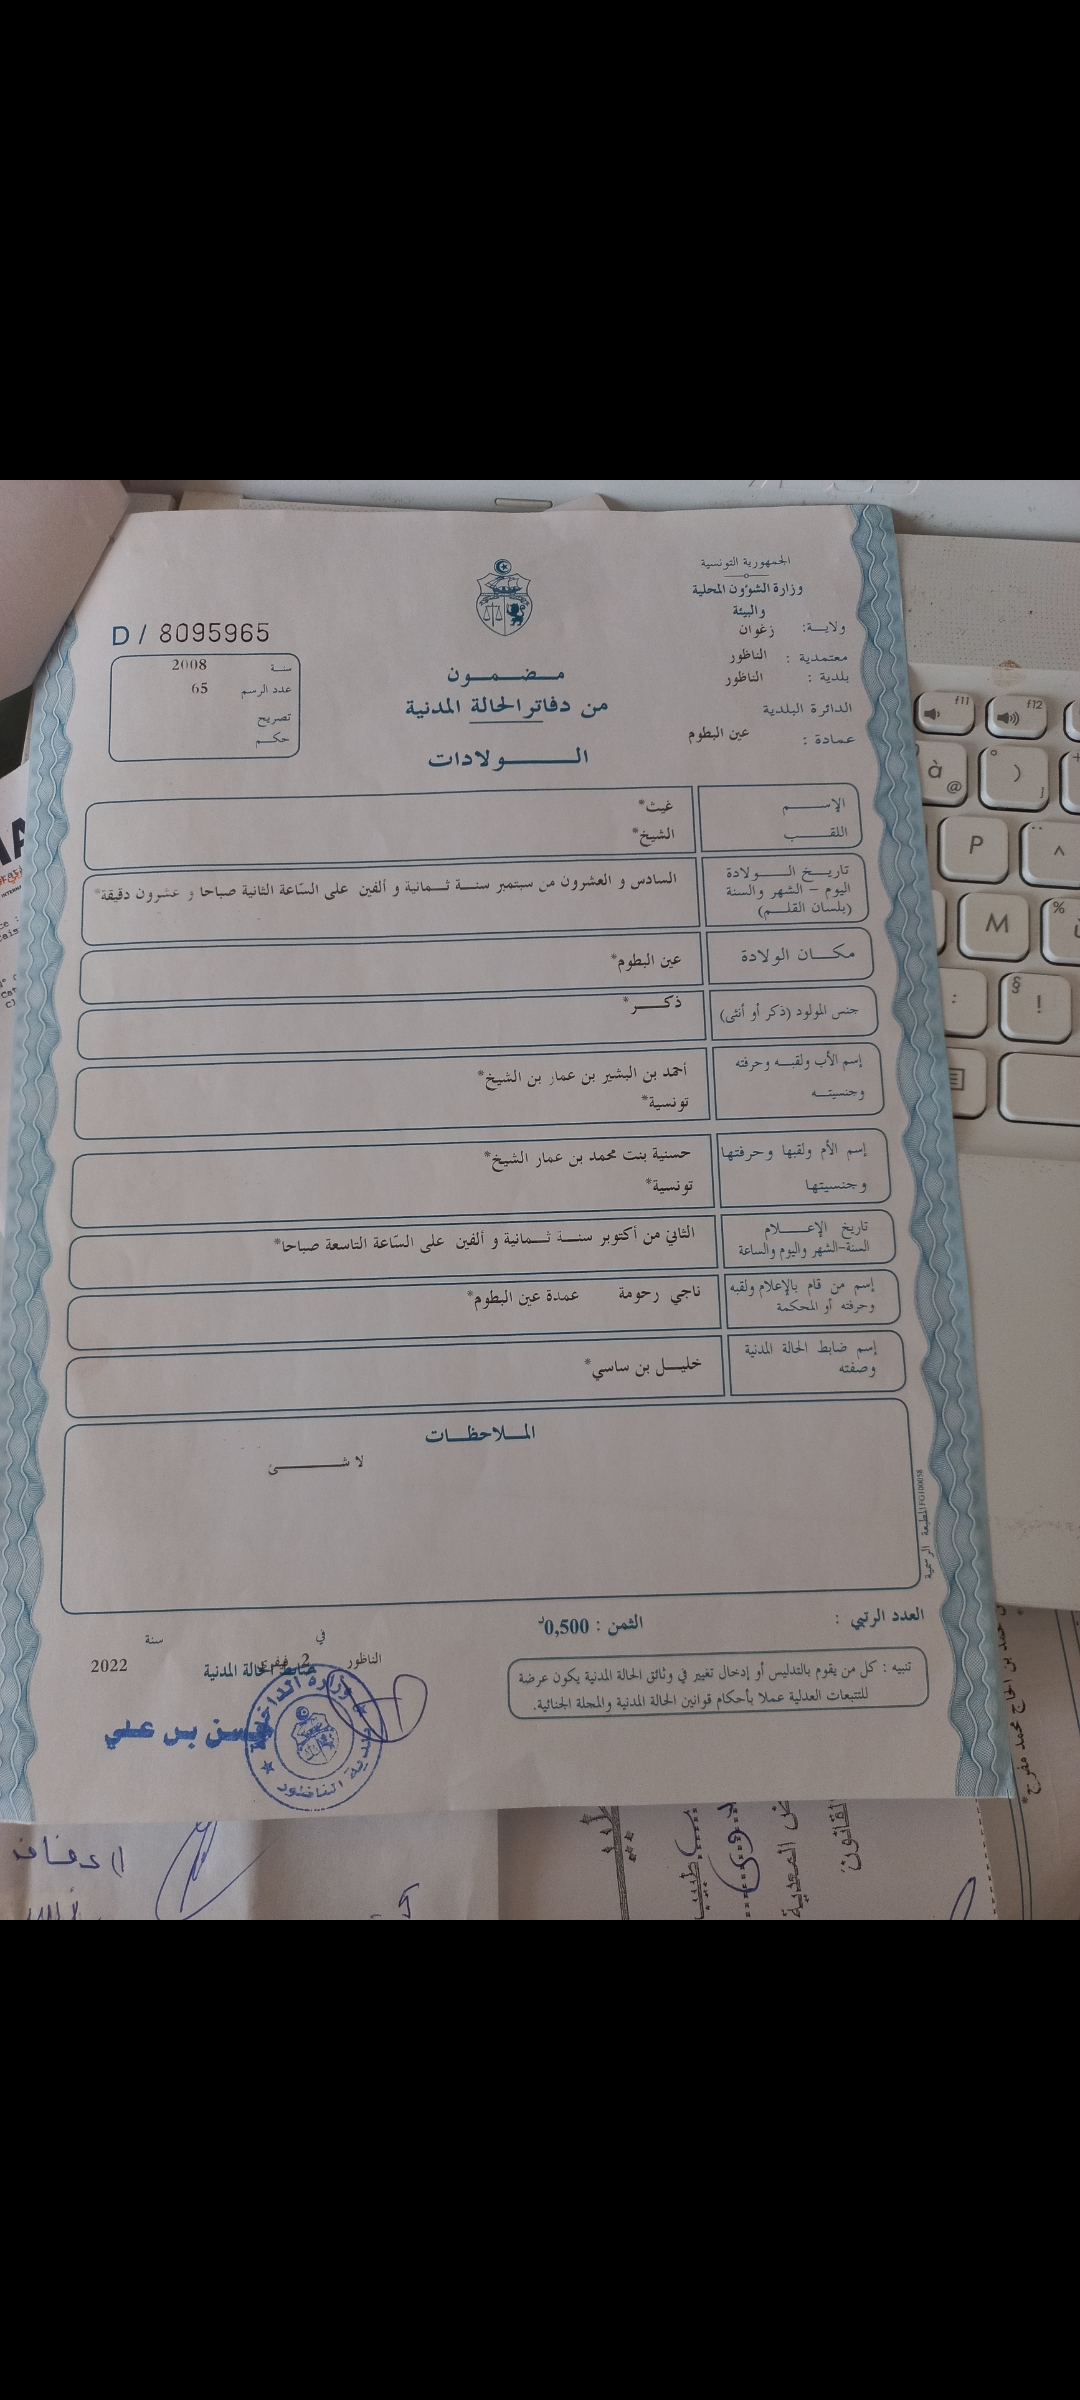 الجمهورية التونسية
وزارة الشؤون المحلية
والبيئة
ولايـــة: زغوان
معتمدية : الناظور
بلدية : الناظور
الدائرة البلدية
عمادة : عين البطوم
D / 8095965
سنــة 2008
عدد الرسم 65
تصريح
حكــم
مــضــمــون
من دفاتر الحالة المدنية
الـــــــولادات
الإســـــم غيث*
اللقــــب الشيخ*
تاريــخ الـــــولادة
اليوم – الشهر والسنة
(بلسان القلــم)
السادس و العشرون من سبتمبر سنــة ثــمانية و ألفين على السّاعة الثانية صباحا و عشرون دقيقة*
مكــــان الولادة عين البطوم*
جنس المولود (ذكر أو أنثى) ذكــــر*
إسم الأب ولقبــه وحرفته أحمد بن البشير بن عمار بن الشيخ*
وجنسيتــه تونسية*
إسم الأم ولقبها وحرفتها حسنية بنت محمد بن عمار الشيخ*
وجنسيتها تونسية*
تاريخ الإعـــــلام
السنة-الشهر واليوم والساعة
الثاني من أكتوبر سنــة ثــمانية و ألفين على السّاعة التاسعة صباحا*
إسم من قام بالإعلام ولقبه
وحرفته أو المحكمة
ناجي رحومة عمدة عين البطوم*
إسم ضابط الحالة المدنية
وصفته
خليــل بن ساسي*
المــلاحظــات
لا شـــــــئ
المطبعة الرسمية FG100058
العدد الرتبي :
الثمن : 0,500د
تنبيه : كل من يقوم بالتدليس أو إدخال تغيير في وثائق الحالة المدنية يكون عرضة
للتتبعات العدلية عملا بأحكام قوانين الحالة المدنية والمجلة الجنائية.
الناظور في 2 فيفري سنة 2022
ضابط الحالة المدنية
بن علي
وزارة الداخلية
بلدية الناظور
f11
f12
à
@
°
)
]
P
¨
^
M
%
:
§
!
بن الحاج محمد مفرح*
طبيب
القانون